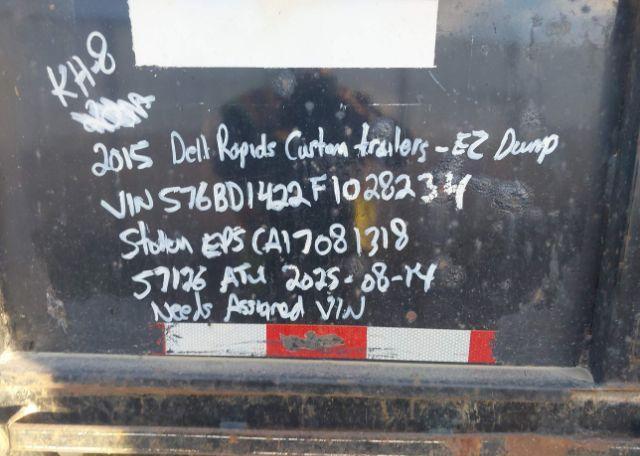 KH-8
2015 Dell Rapids Custom trailers - EZ Dump
VIN 576BD1422F1028234
Stollen EPS CA17081318
57126 ATM 2025-08-14
Needs Assigned VIN